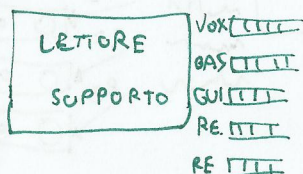 LETTORE
SUPPORTO
VOX
BAS
GUI
RE.
RE